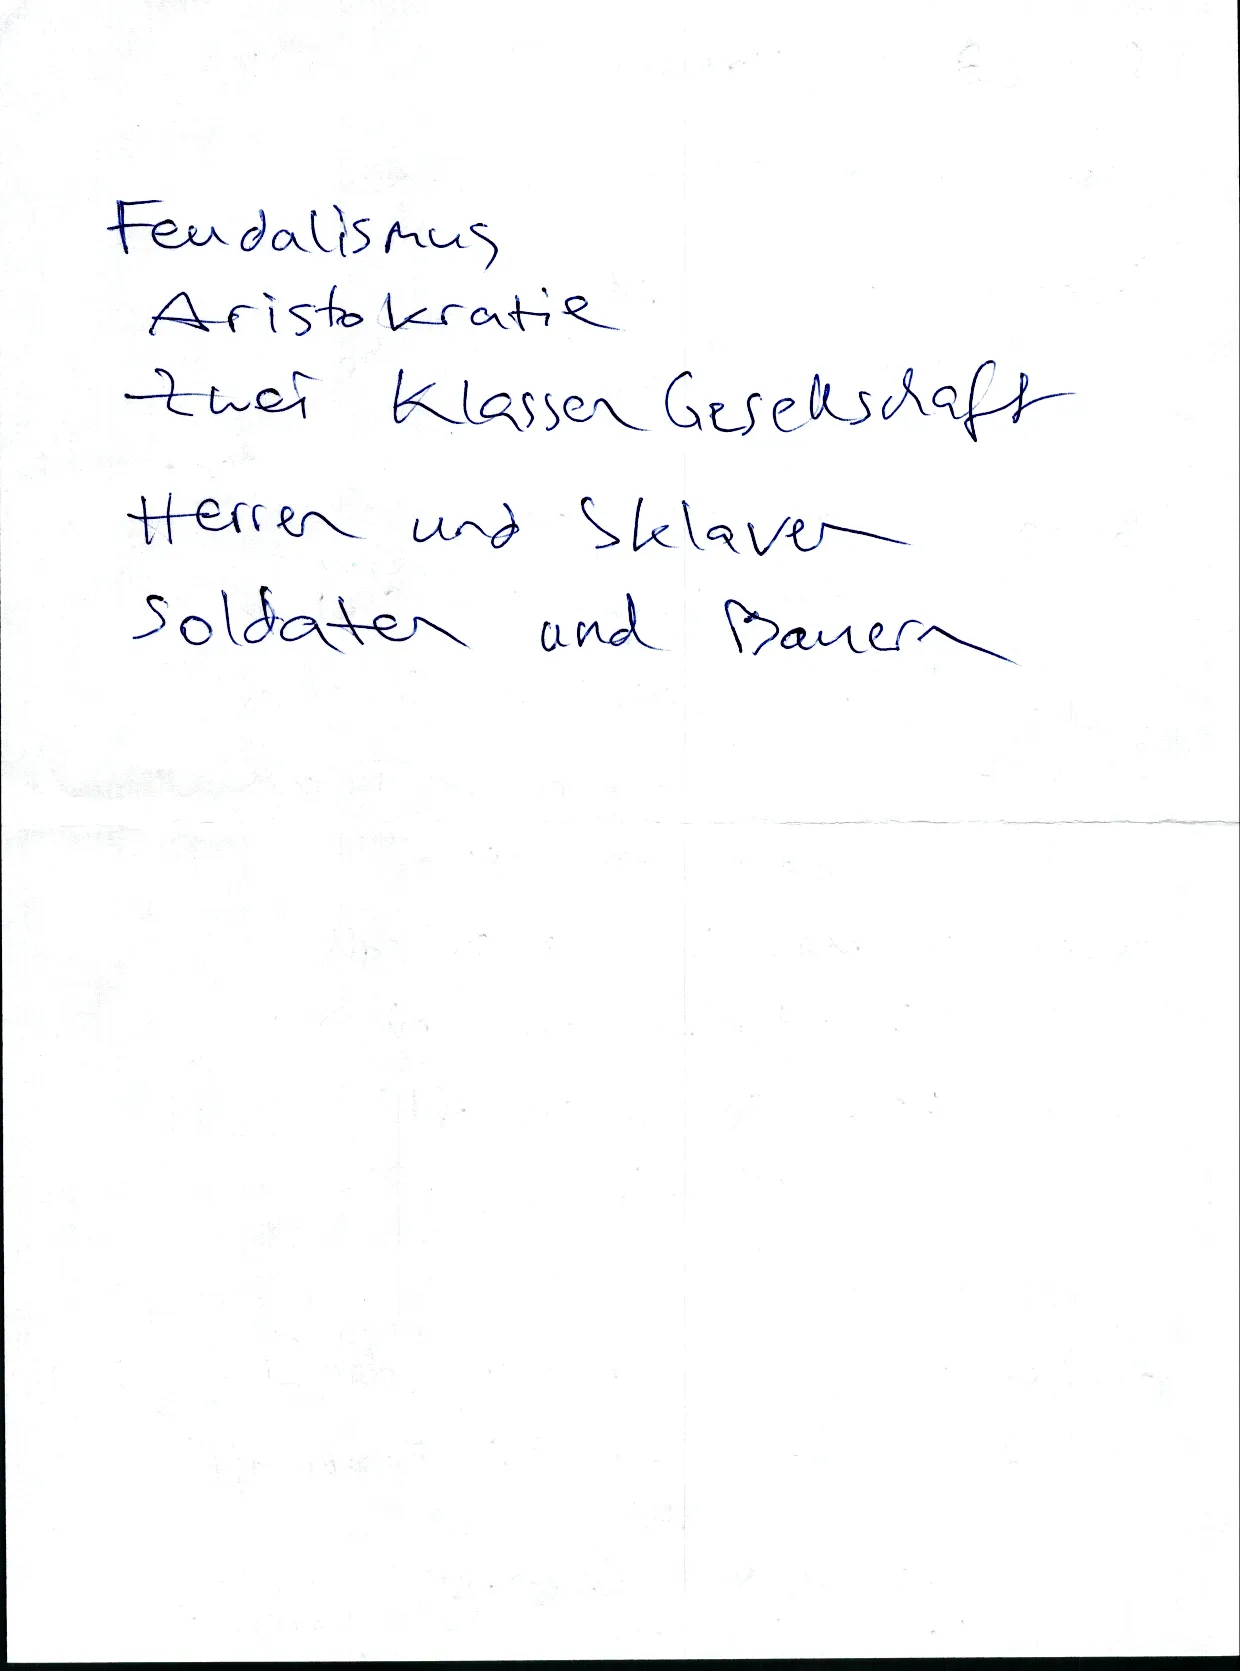 Feudalismus
Aristokratie
Zwei Klassen Gesellschaft
Herren und Sklaven
Soldaten und Bauern